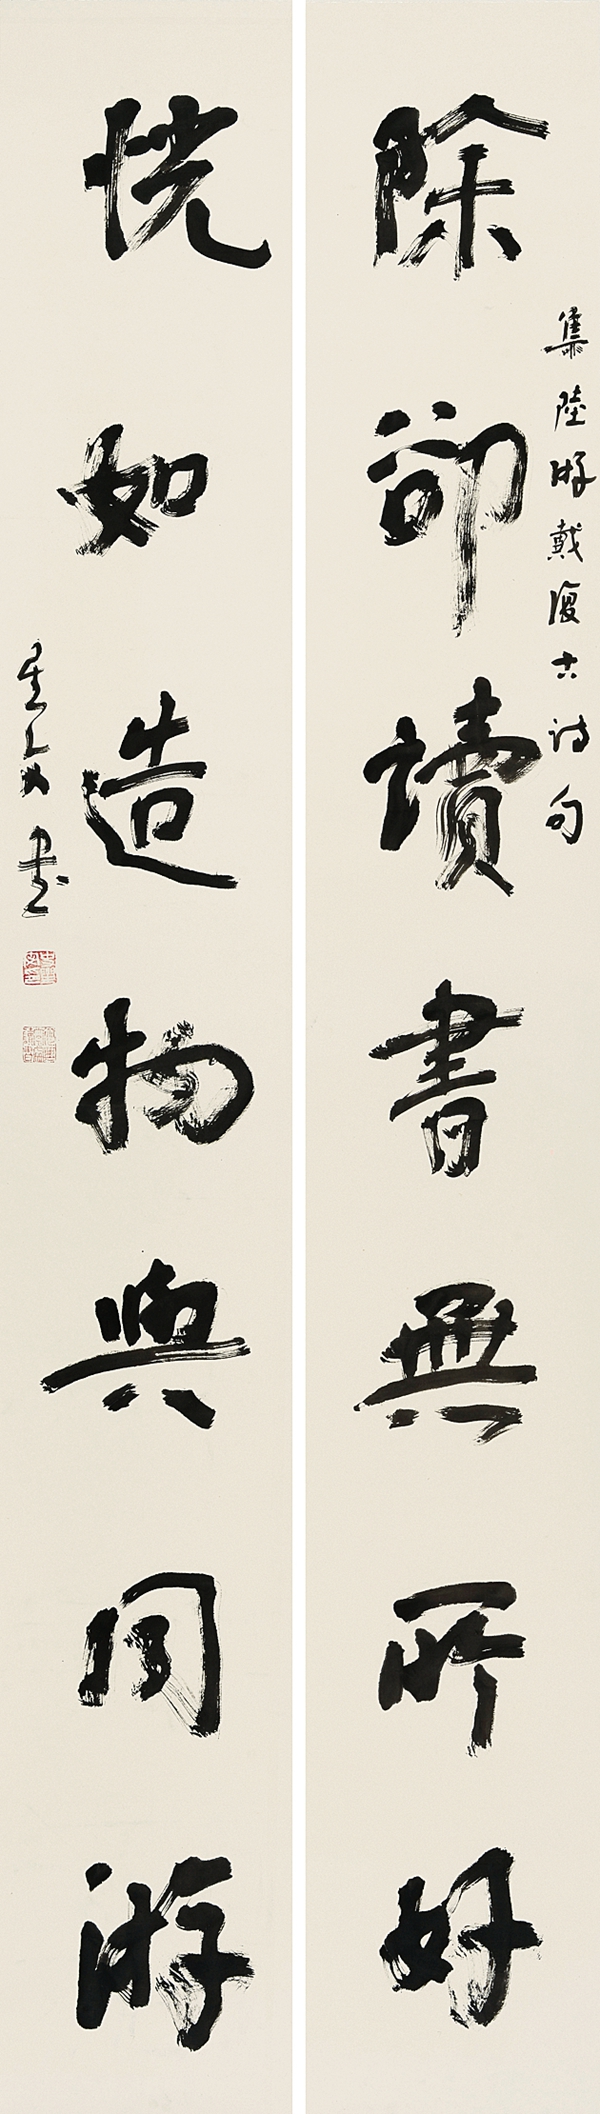 集陸游戴復古诗句
除卻讀書無所好
恍如造物與同游
書